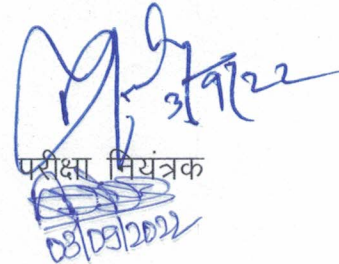 3/9/22
परीक्षा नियंत्रक
03/09/2022